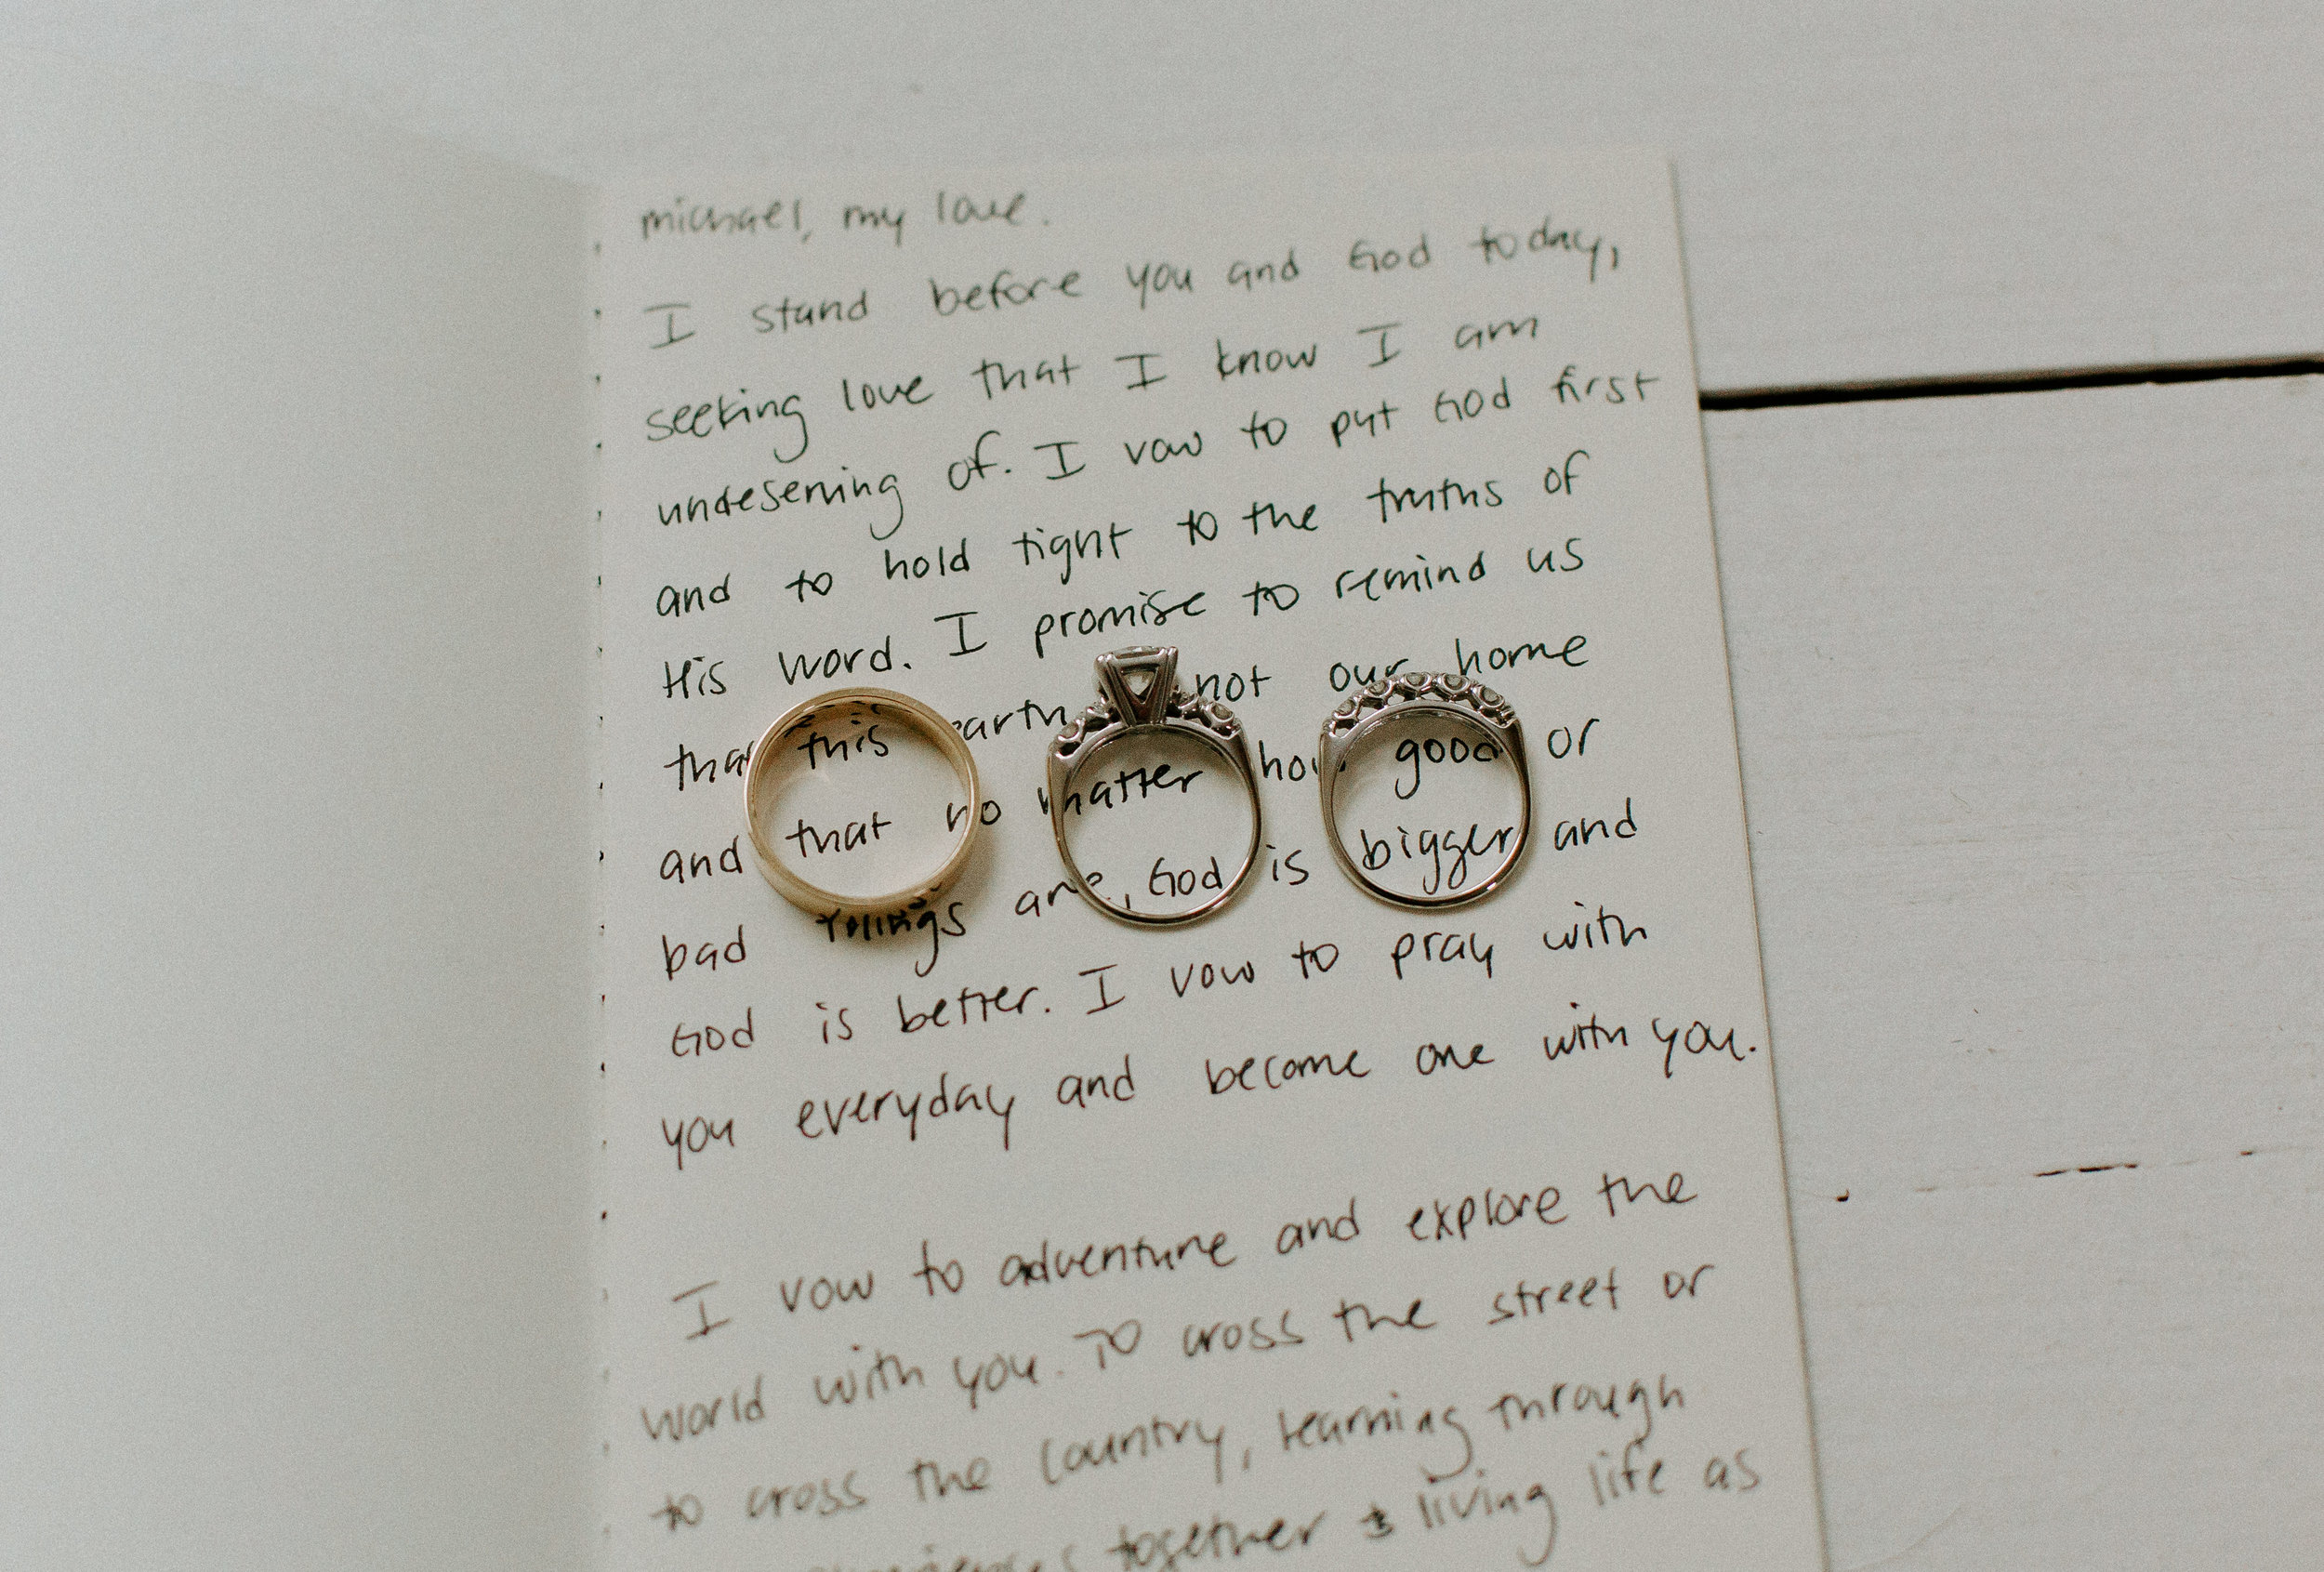 michael, my love.
I stand before you and God today,
seeking love that I know I am
undeserving of. I vow to put God first
and to hold tight to the truths of
His word. I promise to remind us
that this earth not our home
and that no matter how good or
bad things are, God is bigger and
God is better. I vow to pray with
you everyday and become one with you.
I vow to adventure and explore the
world with you. To cross the street or
to cross the country, learning through
together + living life as